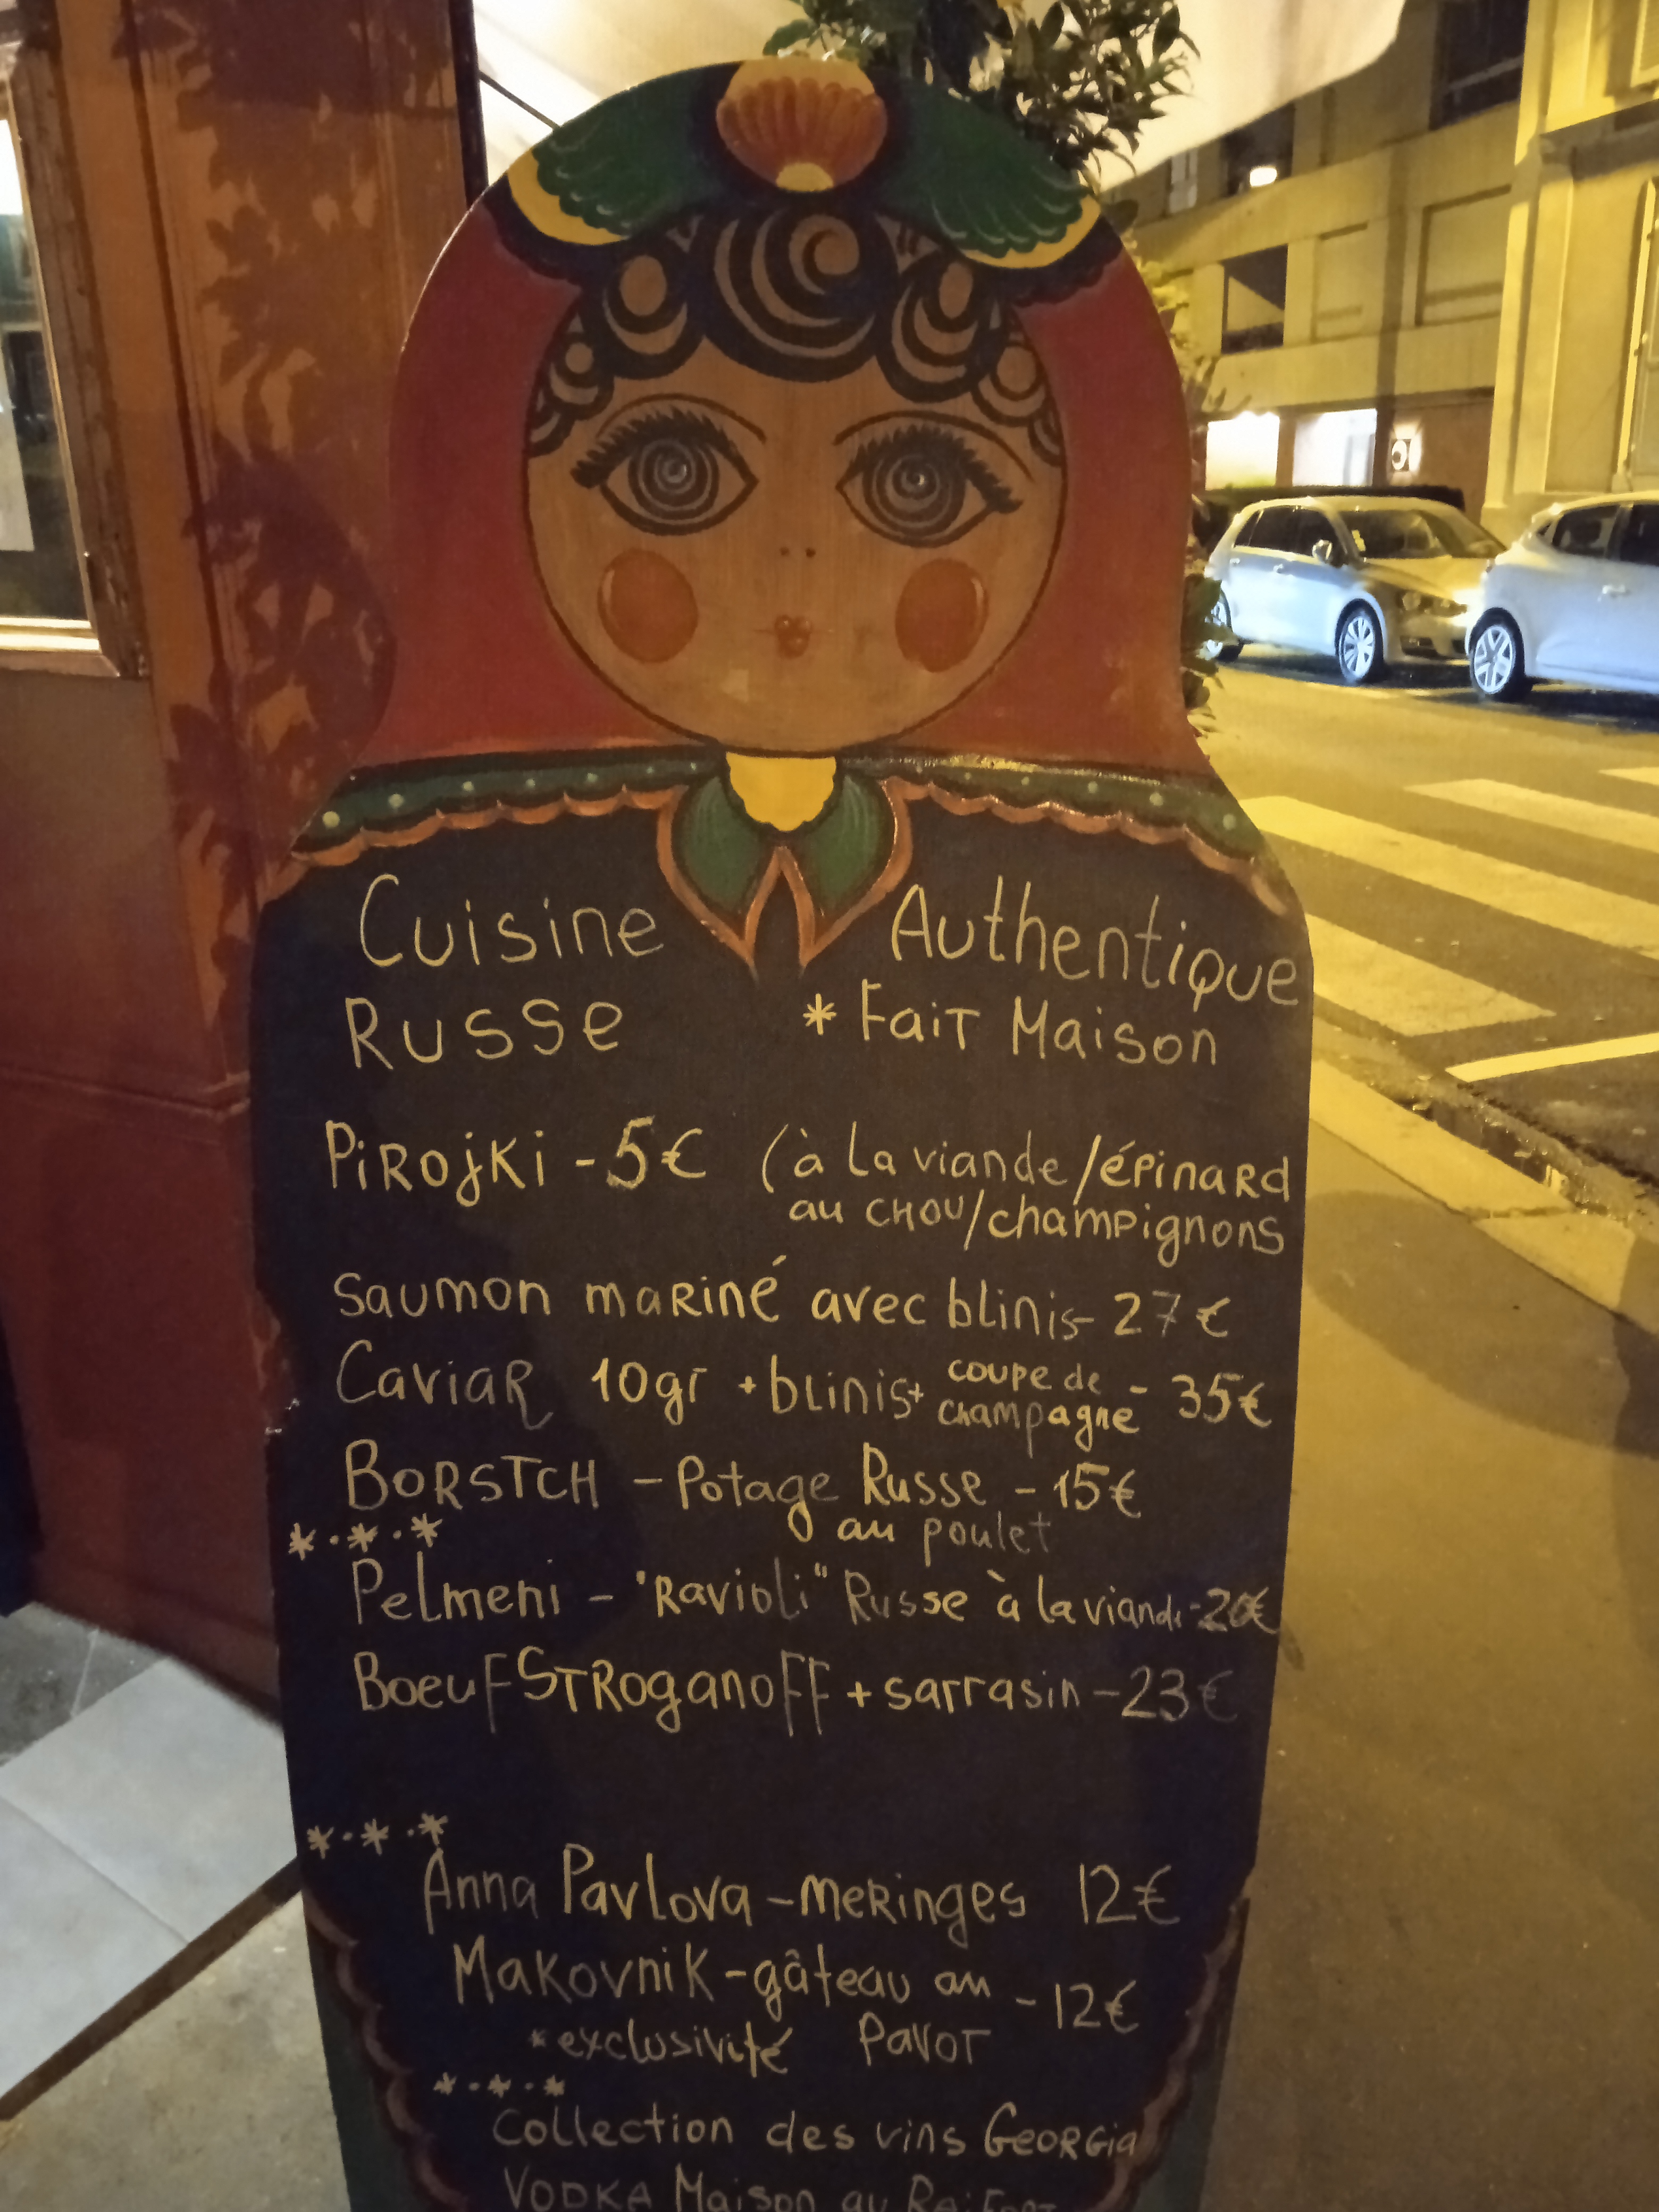 Cuisine Authentique
Russe * Fait Maison
Pirojki - 5€ (à la viande/épinard
au chou/champignons
Saumon mariné avec blinis - 27€
Caviar 10gr + blinis + coupe de champagne - 35€
Borstch - Potage Russe - 15€
au poulet
*.*.*
Pelmeni - "Ravioli" Russe à la viande - 20€
Boeuf Stroganoff + sarrasin - 23€
*.*.*
Anna Pavlova - meringes 12€
Makovnik - gâteau au - 12€
*exclusivité Pavot
*.*.*
Collection des vins Georgia
Vodka Maison au Raifort